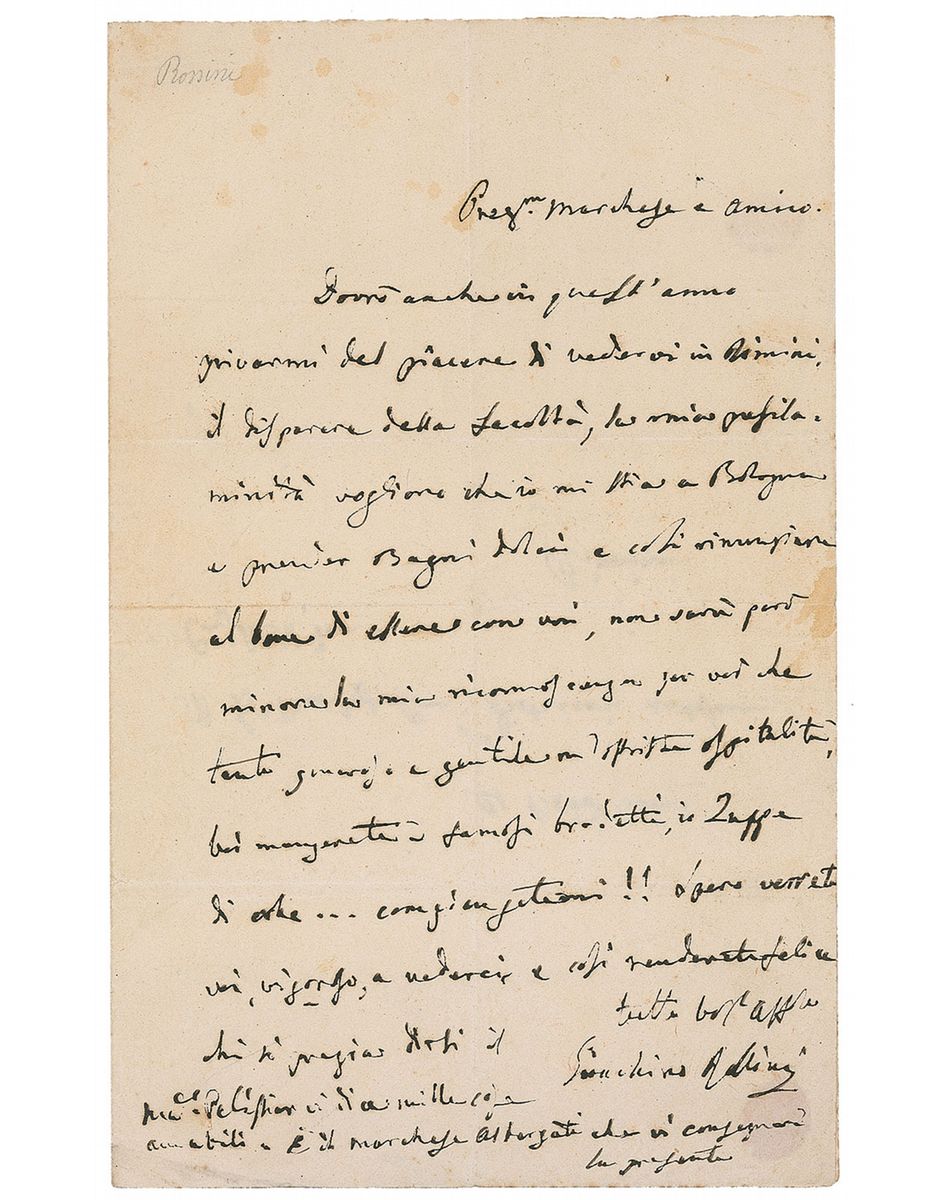 Rossini
Preg.mo Marchese e amico.
Dovrò anche in quest'anno
privarmi del piacere di vedervi in Rimini,
il disparere della facoltà, la mia pusila-
minità vogliono che io mi stia a Bologna
a prender Bagni dolci e così rinunziare
al bene di essere con voi, non sarà però
minore la mia riconoscenza per voi che
tanta generosa e gentile m'offriste ospitalità,
voi mangerete i famosi brodetti, io Zuppe
di erbe ... compiangetemi!! Spero verrete
voi, vigoroso, a vederci, e così renderete felice
chi si pregia dirsi il
tutto vos.o Aff.o
Gioachino Rossini
Mad. Pelissier vi dice mille cose
amabili. È il marchese Albergati che vi consegnerà
la presente